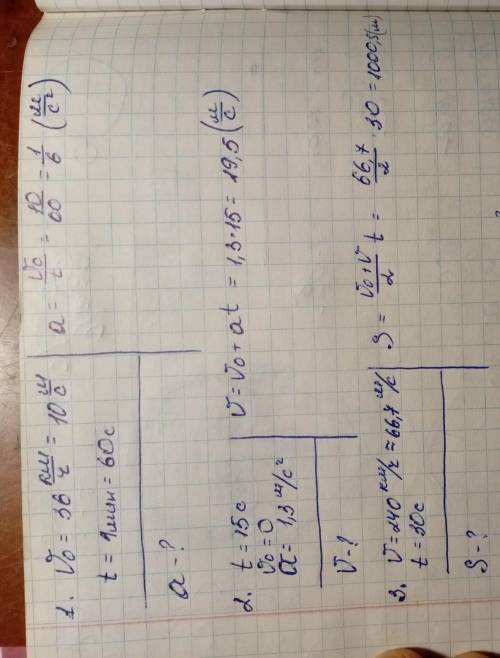 1. V₀ = 36 км/ч = 10 м/с
t = 1 мин = 60 с
a - ?
a = V₀/t = 10/60 = 1/6 (м/с²)
2. t = 15 с
V₀ = 0
a = 1,3 м/с²
V - ?
V = V₀ + at = 1,3 · 15 = 19,5 (м/с)
3. V = 240 км/ч ≈ 66,7 м/с
t = 30 с
S - ?
S = (V₀ + V)/2 t = 66,7/2 · 30 = 1000,5 (м)